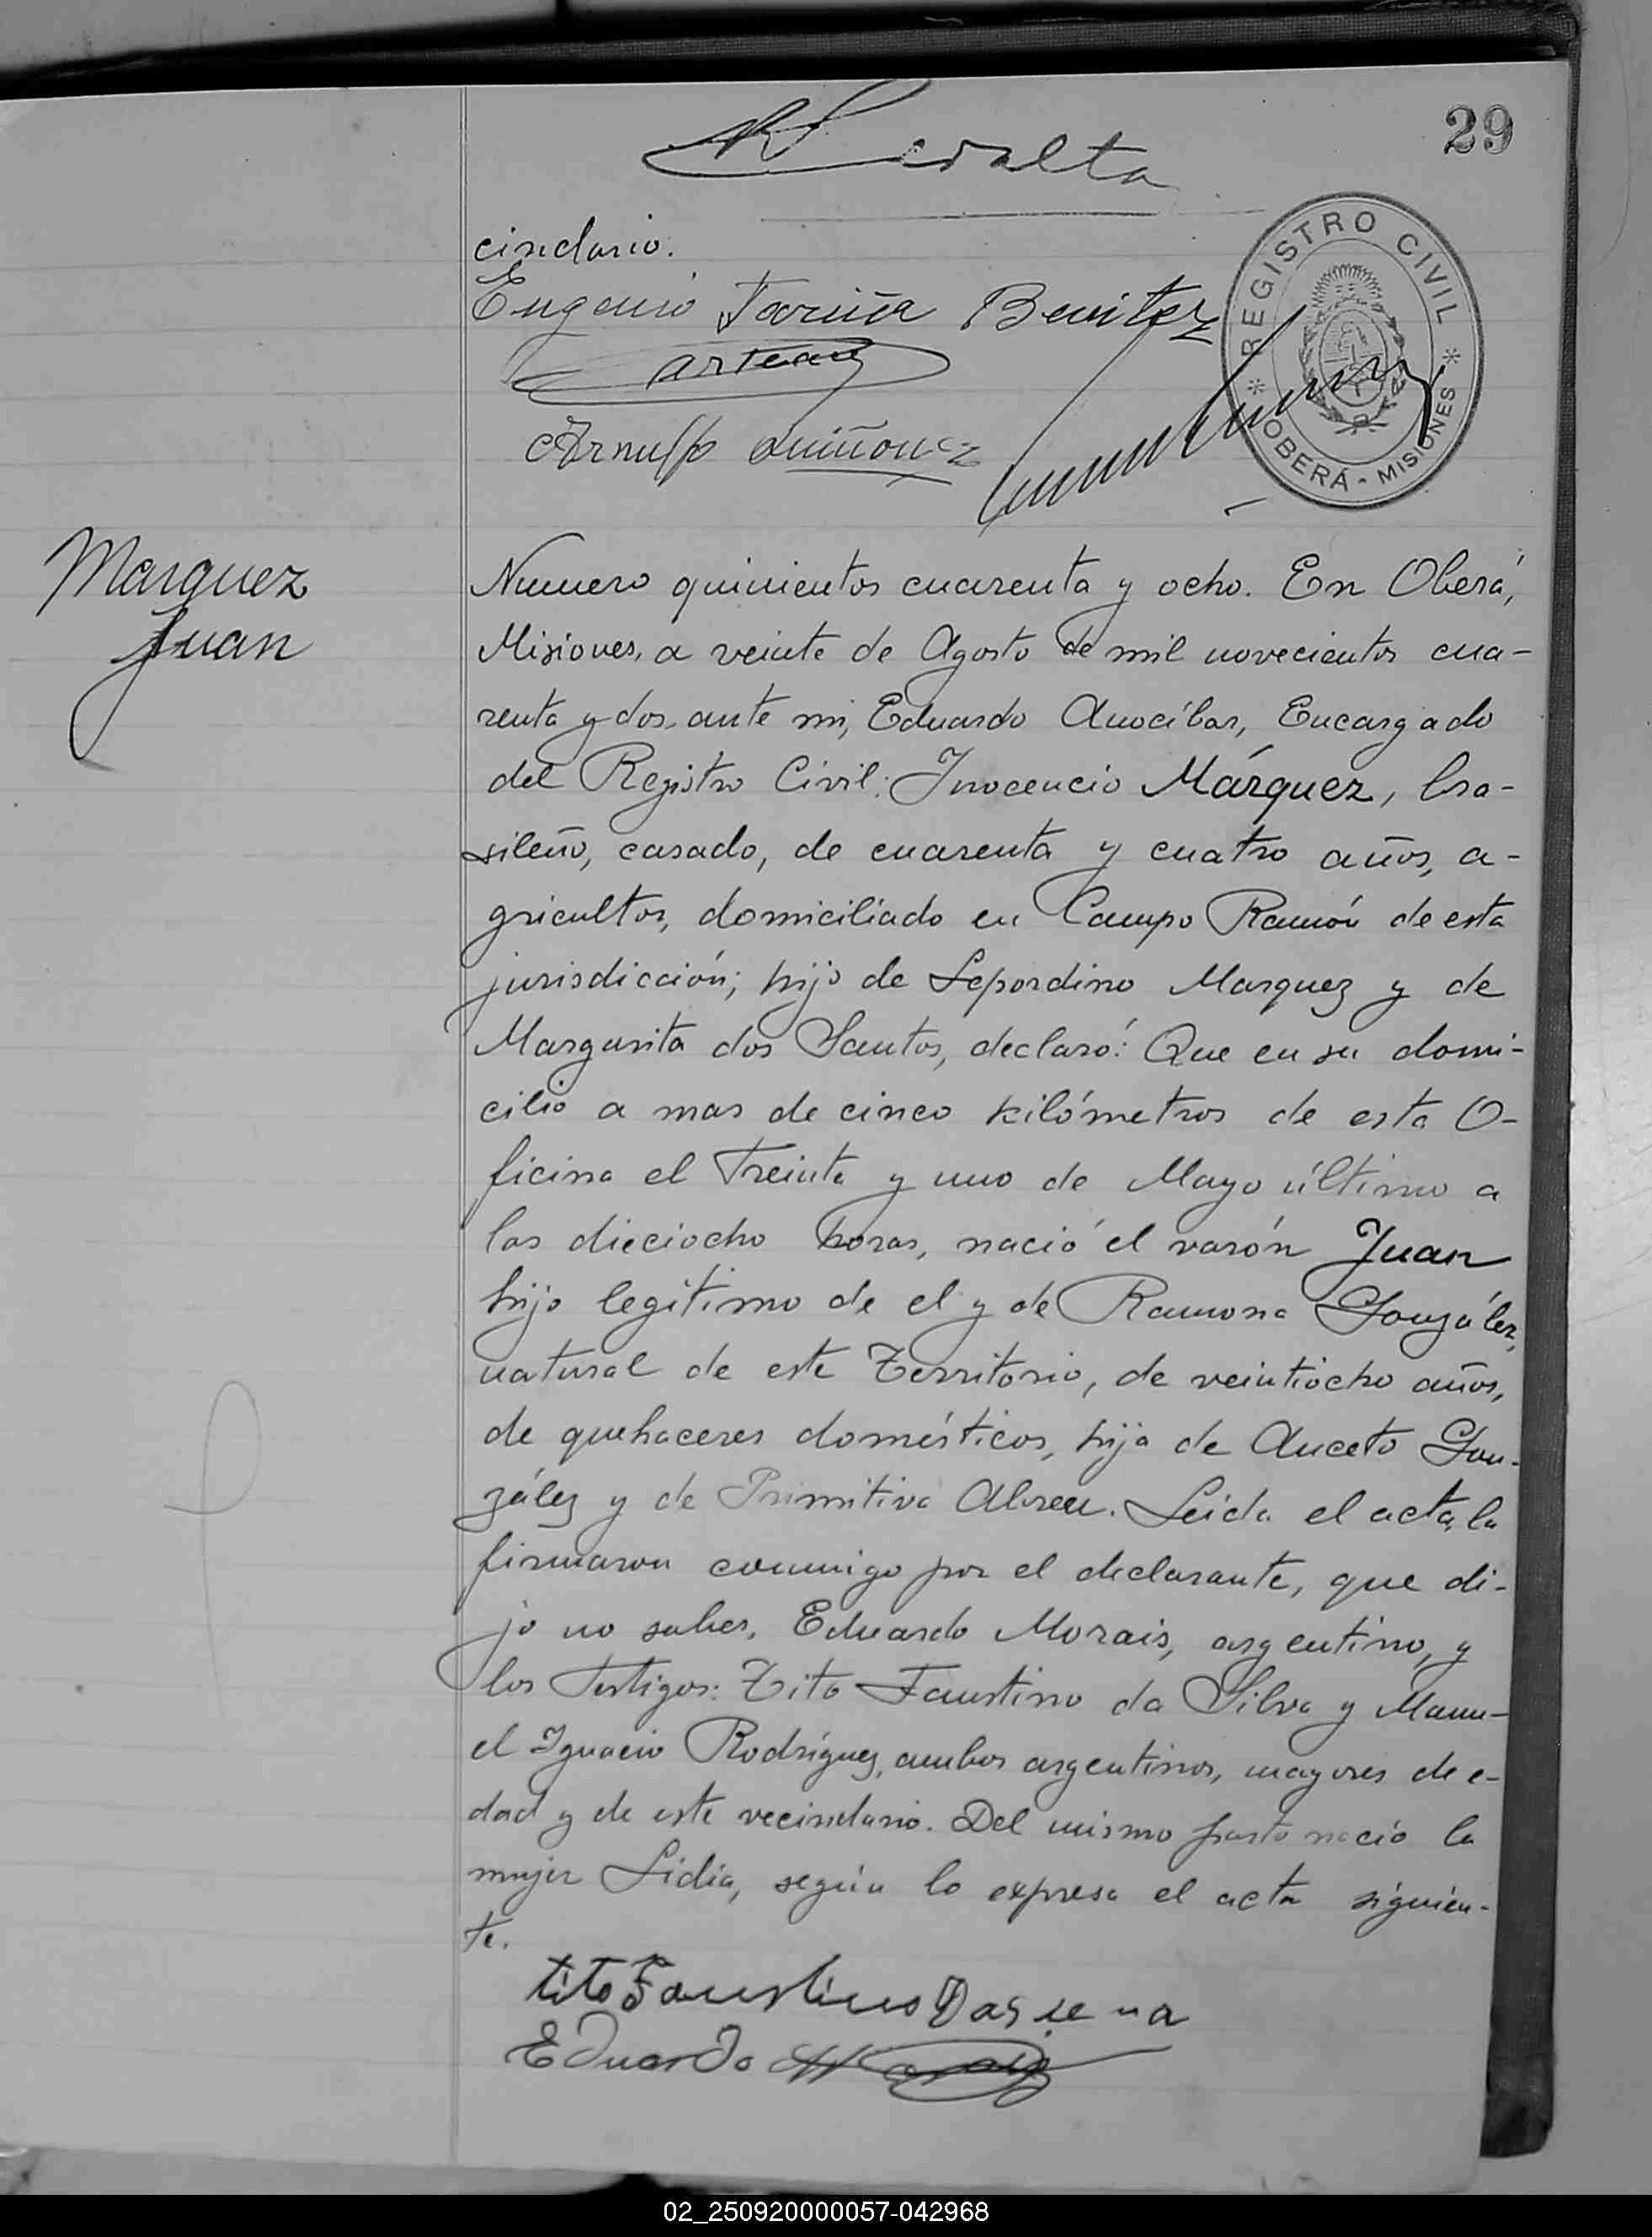 29
Peralta
cindario.
Eugenio Fariña Benitez
REGISTRO CIVIL
OBERÁ - MISIONES
Arnulfo Quiñonez
Marquez
Juan
Numero quinientos cuarenta y ocho. En Oberá,
Misiones, a veinte de Agosto de mil novecientos cua-
renta y dos, ante mi, Eduardo Anocíbar, Encargado
del Registro Civil: Inocencio Márquez, bra-
sileño, casado, de cuarenta y cuatro años, a-
gricultor, domiciliado en Campo Ramón de esta
jurisdicción; hijo de Lepordino Marquez y de
Margarita dos Santos, declaró: Que en su domi-
cilio a mas de cinco kilómetros de esta O-
ficina el treinta y uno de Mayo último a
las dieciocho horas, nació el varón Juan
hijo legítimo de el y de Ramona González,
natural de este Territorio, de veintiocho años,
de quehaceres domésticos, hija de Aniceto Gon-
zález y de Primitiva Abreu. Leida el acta, la
firmaron conmigo por el declarante, que di-
jo no saber, Eduardo Morais, argentino, y
los testigos: Tito Faustino da Silva y Manu-
el Ignacio Rodríguez, ambos argentinos, mayores de e-
dad y de este vecindario. Del mismo parto nació la
mujer Lidia, según lo expresa el acta siguien-
te.
tito Faustino
Eduardo Morais
02_250920000057-042968